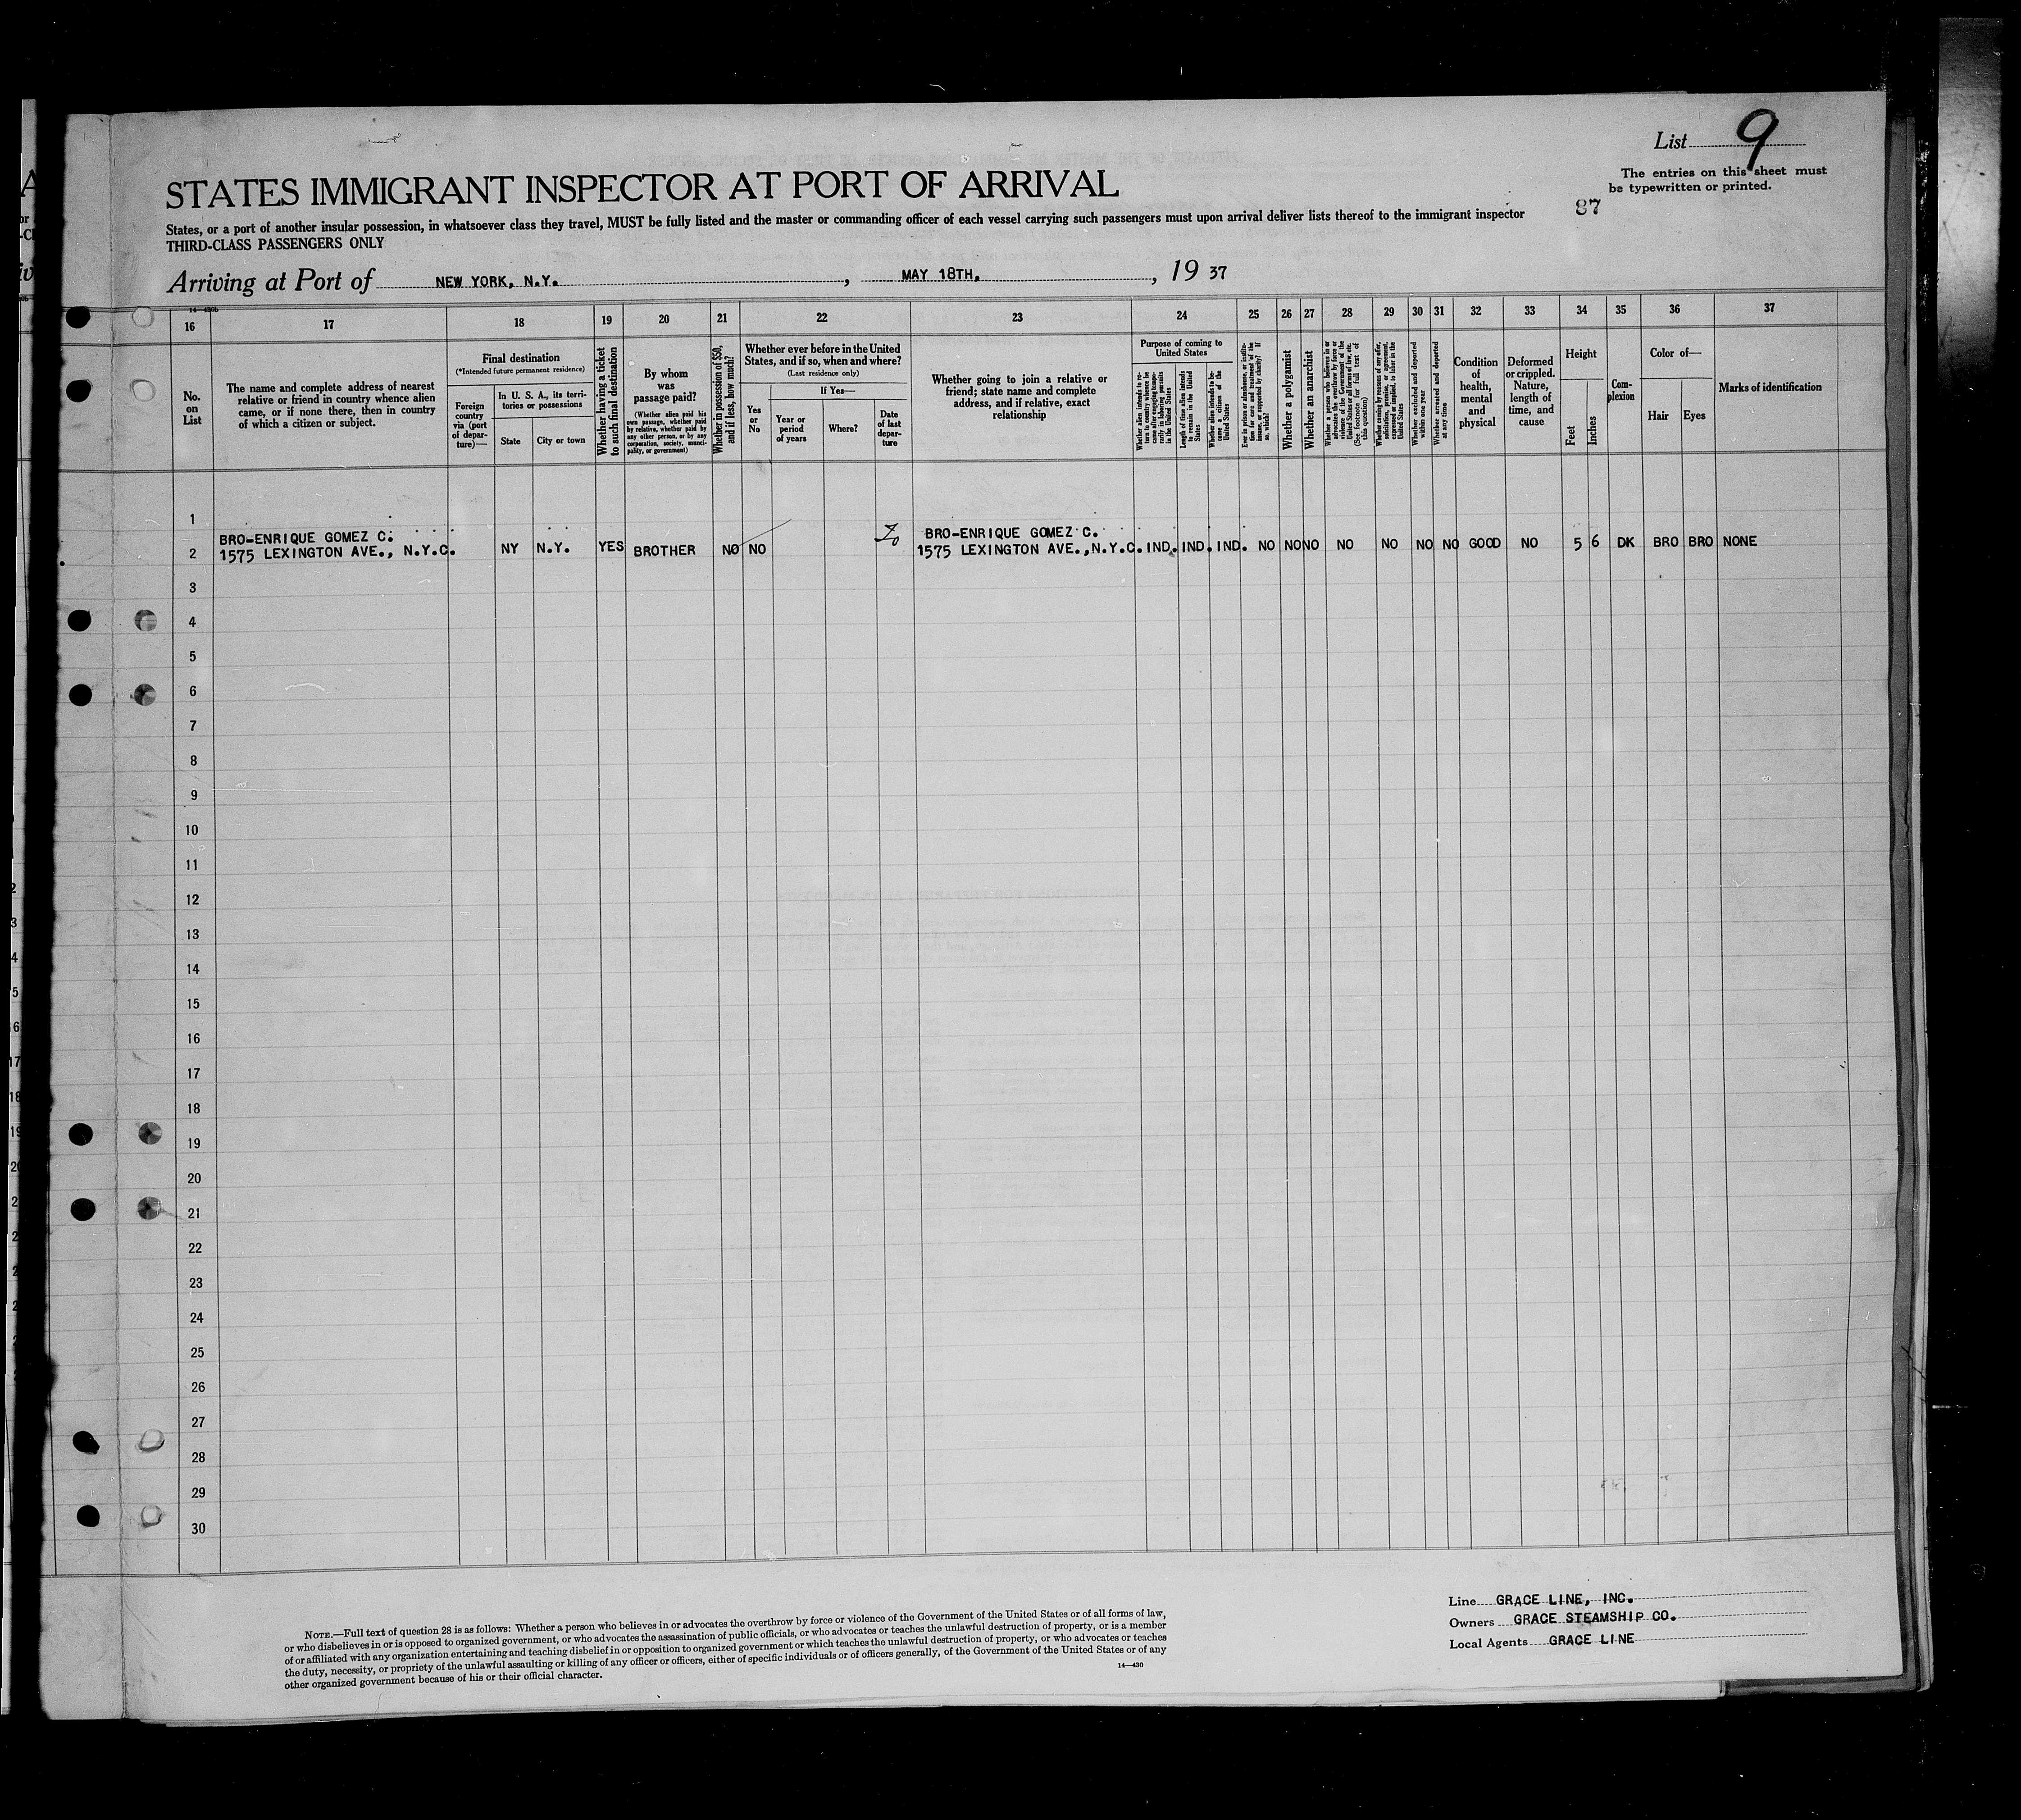 List 9
The entries on this sheet must
be typewritten or printed.
87
STATES IMMIGRANT INSPECTOR AT PORT OF ARRIVAL
States, or a port of another insular possession, in whatsoever class they travel, MUST be fully listed and the master or commanding officer of each vessel carrying such passengers must upon arrival deliver lists thereof to the immigrant inspector
THIRD-CLASS PASSENGERS ONLY
Arriving at Port of NEW YORK, N.Y. , MAY 18TH, , 19 37
14—430b
16 17 18 19 20 21 22 23 24 25 26 27 28 29 30 31 32 33 34 35 36 37
No.
on
List
The name and complete address of nearest
relative or friend in country whence alien
came, or if none there, then in country
of which a citizen or subject.
Final destination
(*Intended future permanent residence)
Foreign
country
via (port
of depar-
ture)—
In U. S. A., its terri-
tories or possessions
State
City or town
Whether having a ticket
to such final destination
By whom
was
passage paid?
(Whether alien paid his
own passage, whether paid
by relative, whether paid by
any other person, or by any
corporation, society, munici-
pality, or government)
Whether in possession of $50,
and if less, how much?
Whether ever before in the United
States, and if so, when and where?
(Last residence only)
Yes
or
No
If Yes—
Year or
period
of years
Where?
Date
of last
depar-
ture
Whether going to join a relative or
friend; state name and complete
address, and if relative, exact
relationship
Purpose of coming to
United States
Whether alien intends to re-
turn to country whence he
came after engaging tempo-
rarily in laboring pursuits
in the United States
Length of time alien intends
to remain in the United
States
Whether alien intends to be-
come a citizen of the
United States
Ever in prison or almshouse, or institu-
tion for care and treatment of the
insane, or supported by charity? If
so, which?
Whether a polygamist
Whether an anarchist
Whether a person who believes in or
advocates the overthrow by force or
violence of the Government of the
United States or all forms of law, etc.
(See footnote for full text of
this question)
Whether coming by reasons of any offer,
solicitation, promise, or agreement,
expressed or implied, to labor in the
United States
Whether excluded and deported
within one year
Whether arrested and deported
at any time
Condition
of
health,
mental
and
physical
Deformed
or crippled.
Nature,
length of
time, and
cause
Height
Feet
Inches
Com-
plexion
Color of—
Hair
Eyes
Marks of identification
1
BRO-ENRIQUE GOMEZ C. BRO-ENRIQUE GOMEZ C.
2 1575 LEXINGTON AVE., N.Y.C. NY N.Y. YES BROTHER NO NO 1575 LEXINGTON AVE., N.Y.C. IND. IND. IND. NO NO NO NO NO NO NO GOOD NO 5 6 DK BRO BRO NONE
3
4
5
6
7
8
9
10
11
12
13
14
15
16
17
18
19
20
21
22
23
24
25
26
27
28
29
30
NOTE.—Full text of question 28 is as follows: Whether a person who believes in or advocates the overthrow by force or violence of the Government of the United States or of all forms of law,
or who disbelieves in or is opposed to organized government, or who advocates the assassination of public officials, or who advocates or teaches the unlawful destruction of property, or is a member
of or affiliated with any organization entertaining and teaching disbelief in or opposition to organized government or which teaches the unlawful destruction of property, or who advocates or teaches
the duty, necessity, or propriety of the unlawful assaulting or killing of any officer or officers, either of specific individuals or of officers generally, of the Government of the United States or of any
other organized government because of his or their official character.
14—430
Line GRACE LINE, INC.
Owners GRACE STEAMSHIP CO.
Local Agents GRACE LINE